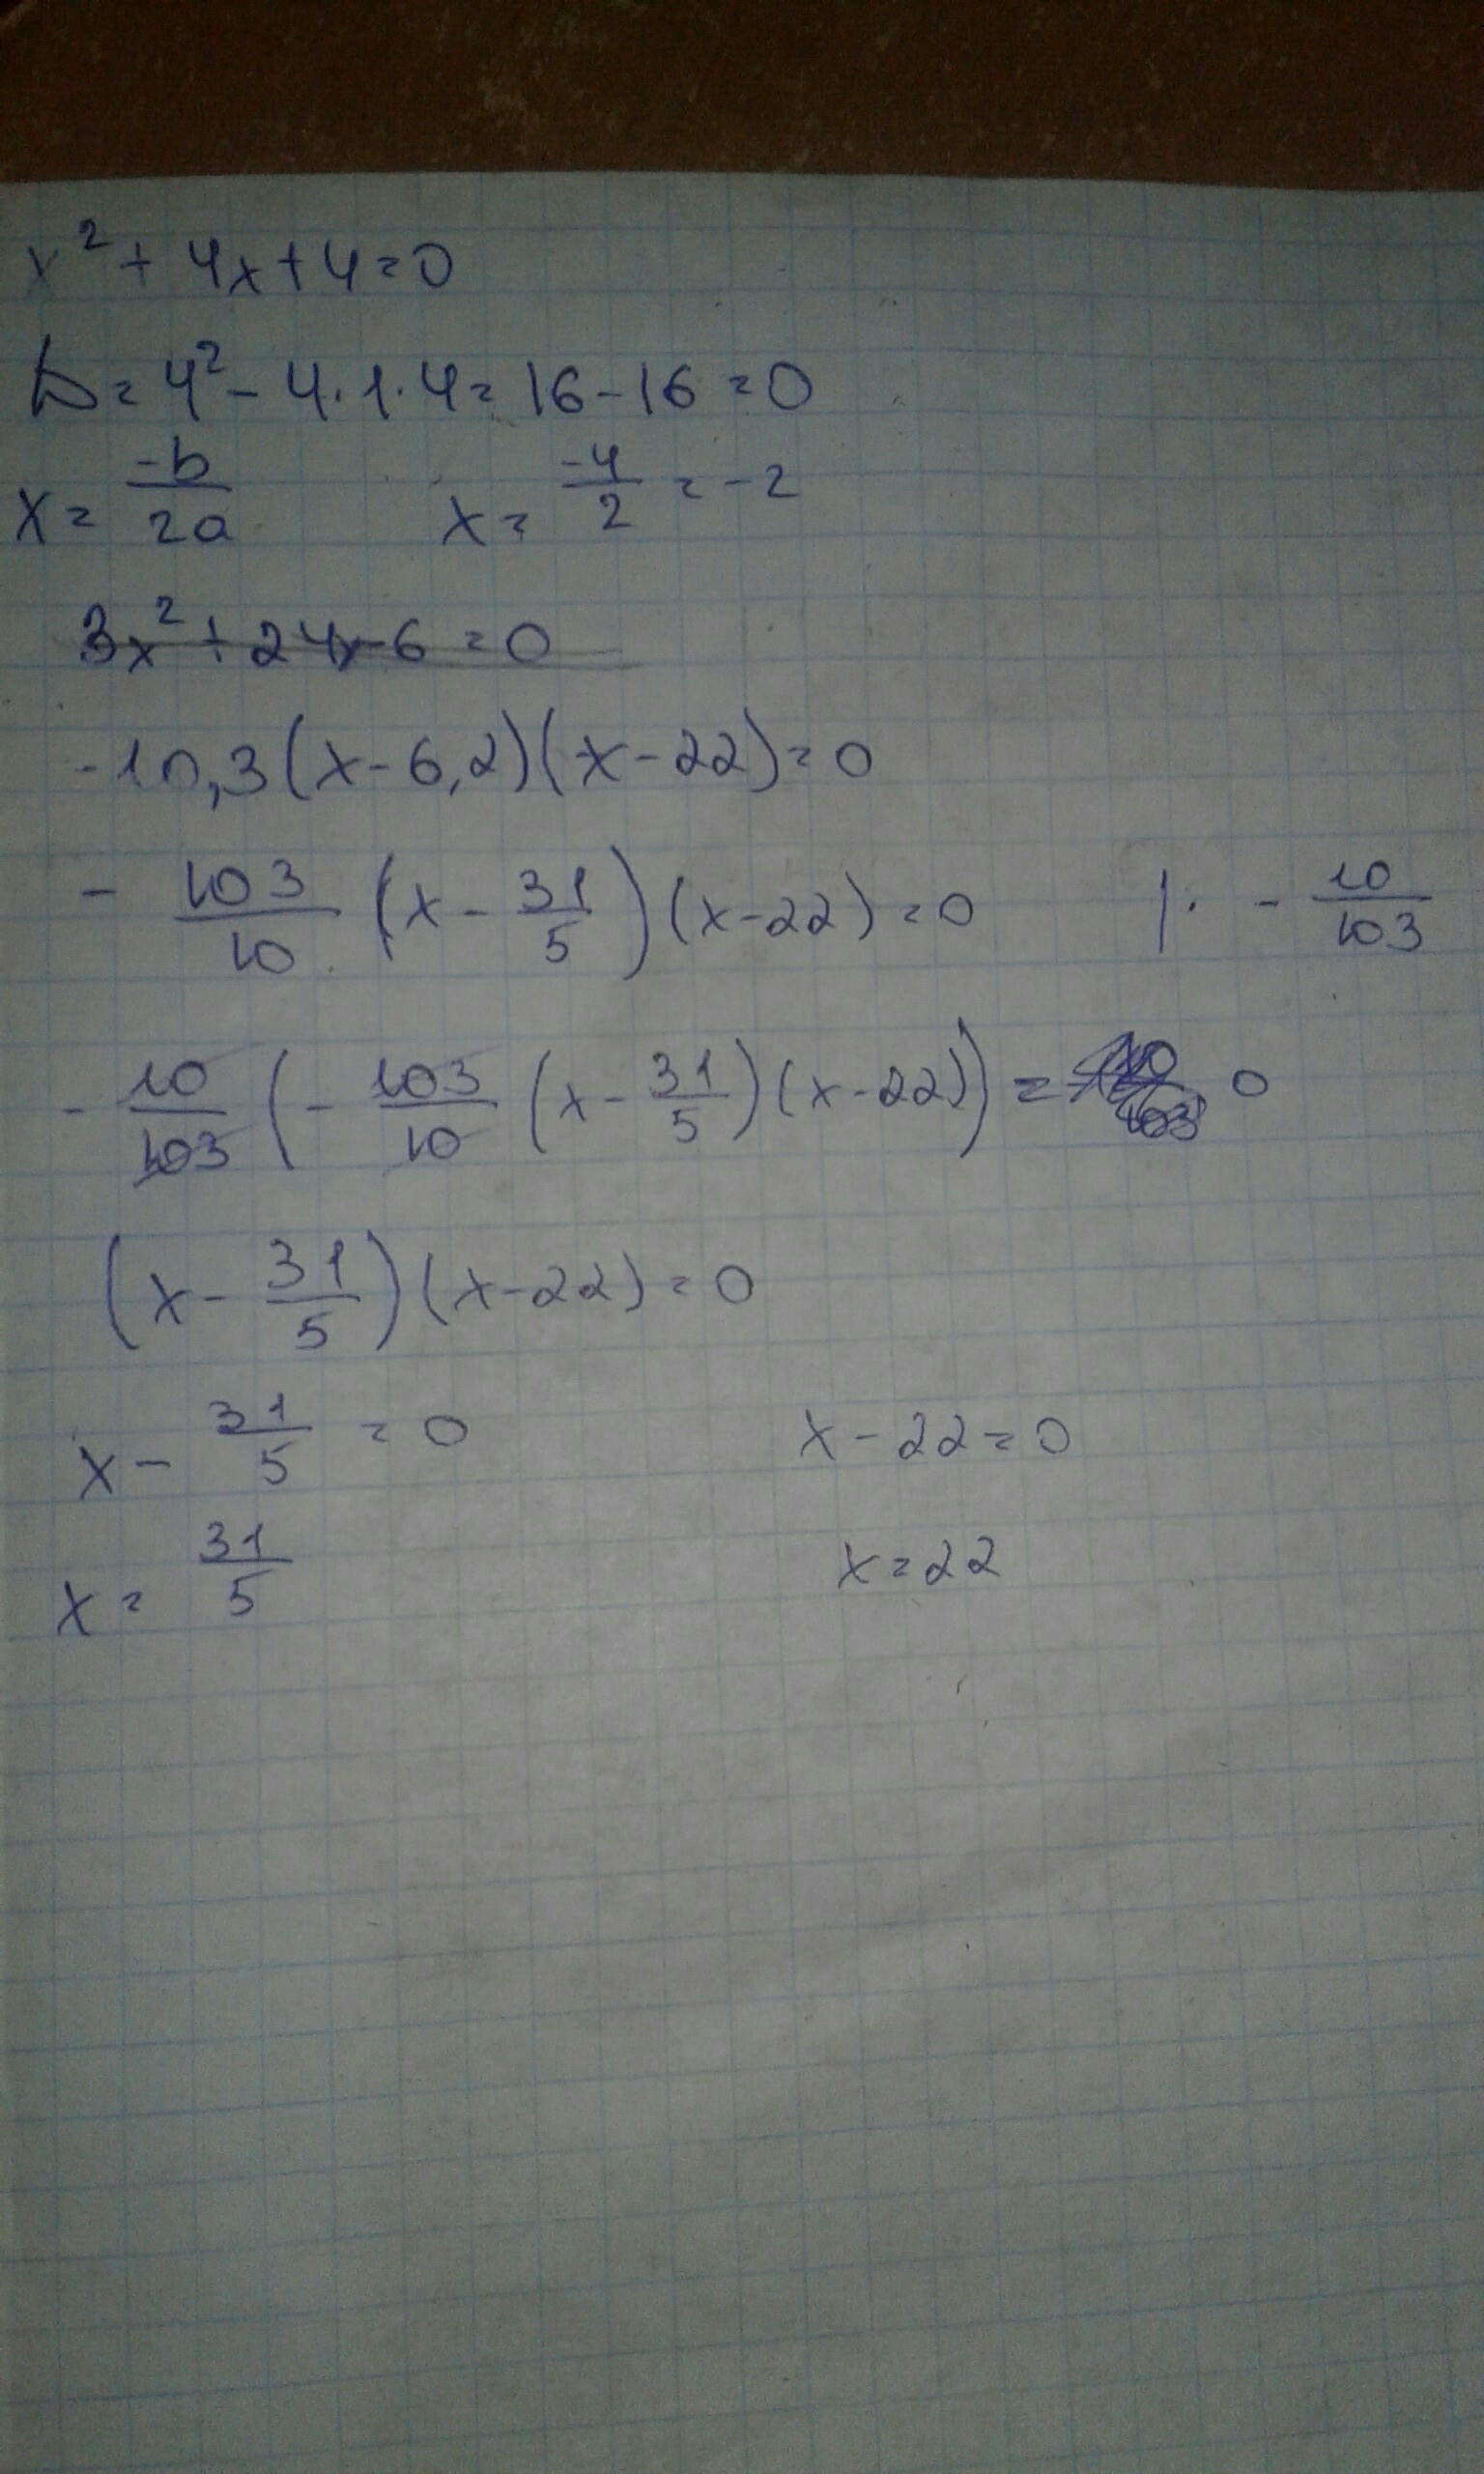 x² + 4x + 4 = 0
D = 4² - 4·1·4 = 16 - 16 = 0
x = -b/2a x = -4/2 = -2
3x² + 24x - 6 = 0
-10,3(x - 6,2)(x - 22) = 0
- 103/10 (x - 31/5)(x - 22) = 0 |· - 10/103
- 10/103 (- 103/10 (x - 31/5)(x - 22)) = 0
(x - 31/5)(x - 22) = 0
x - 31/5 = 0 x - 22 = 0
x = 31/5 x = 22